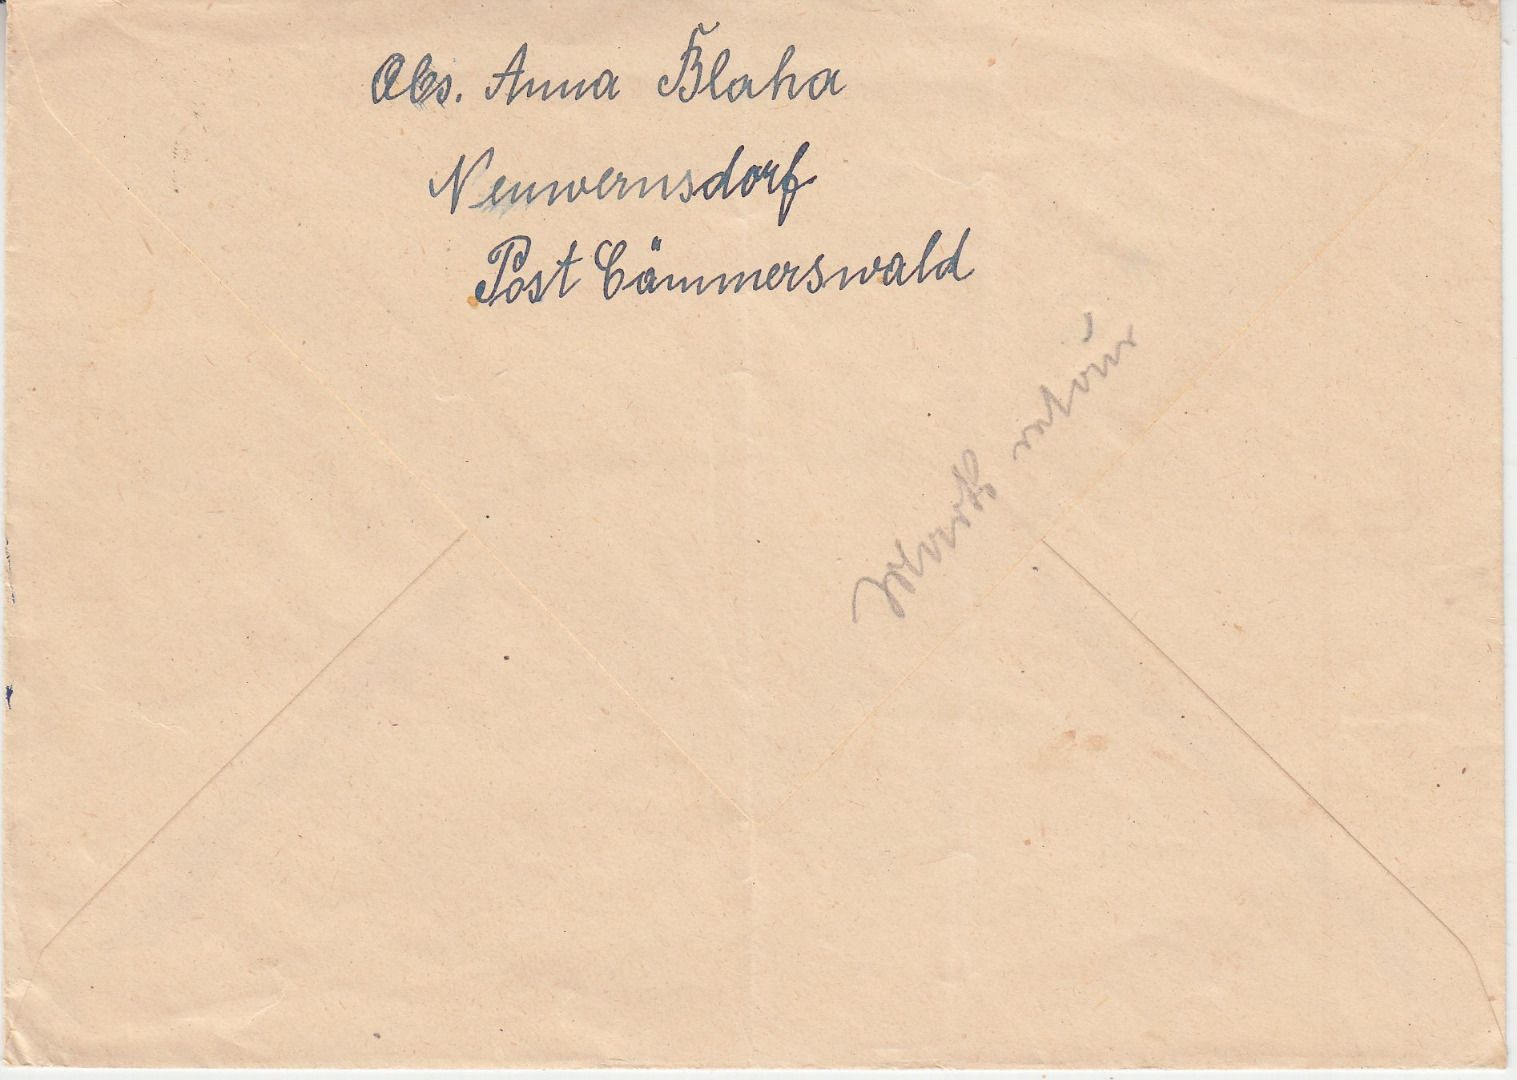 Abs. Anna Blaha
Neuwernsdorf
Post Cämmerswald
retour